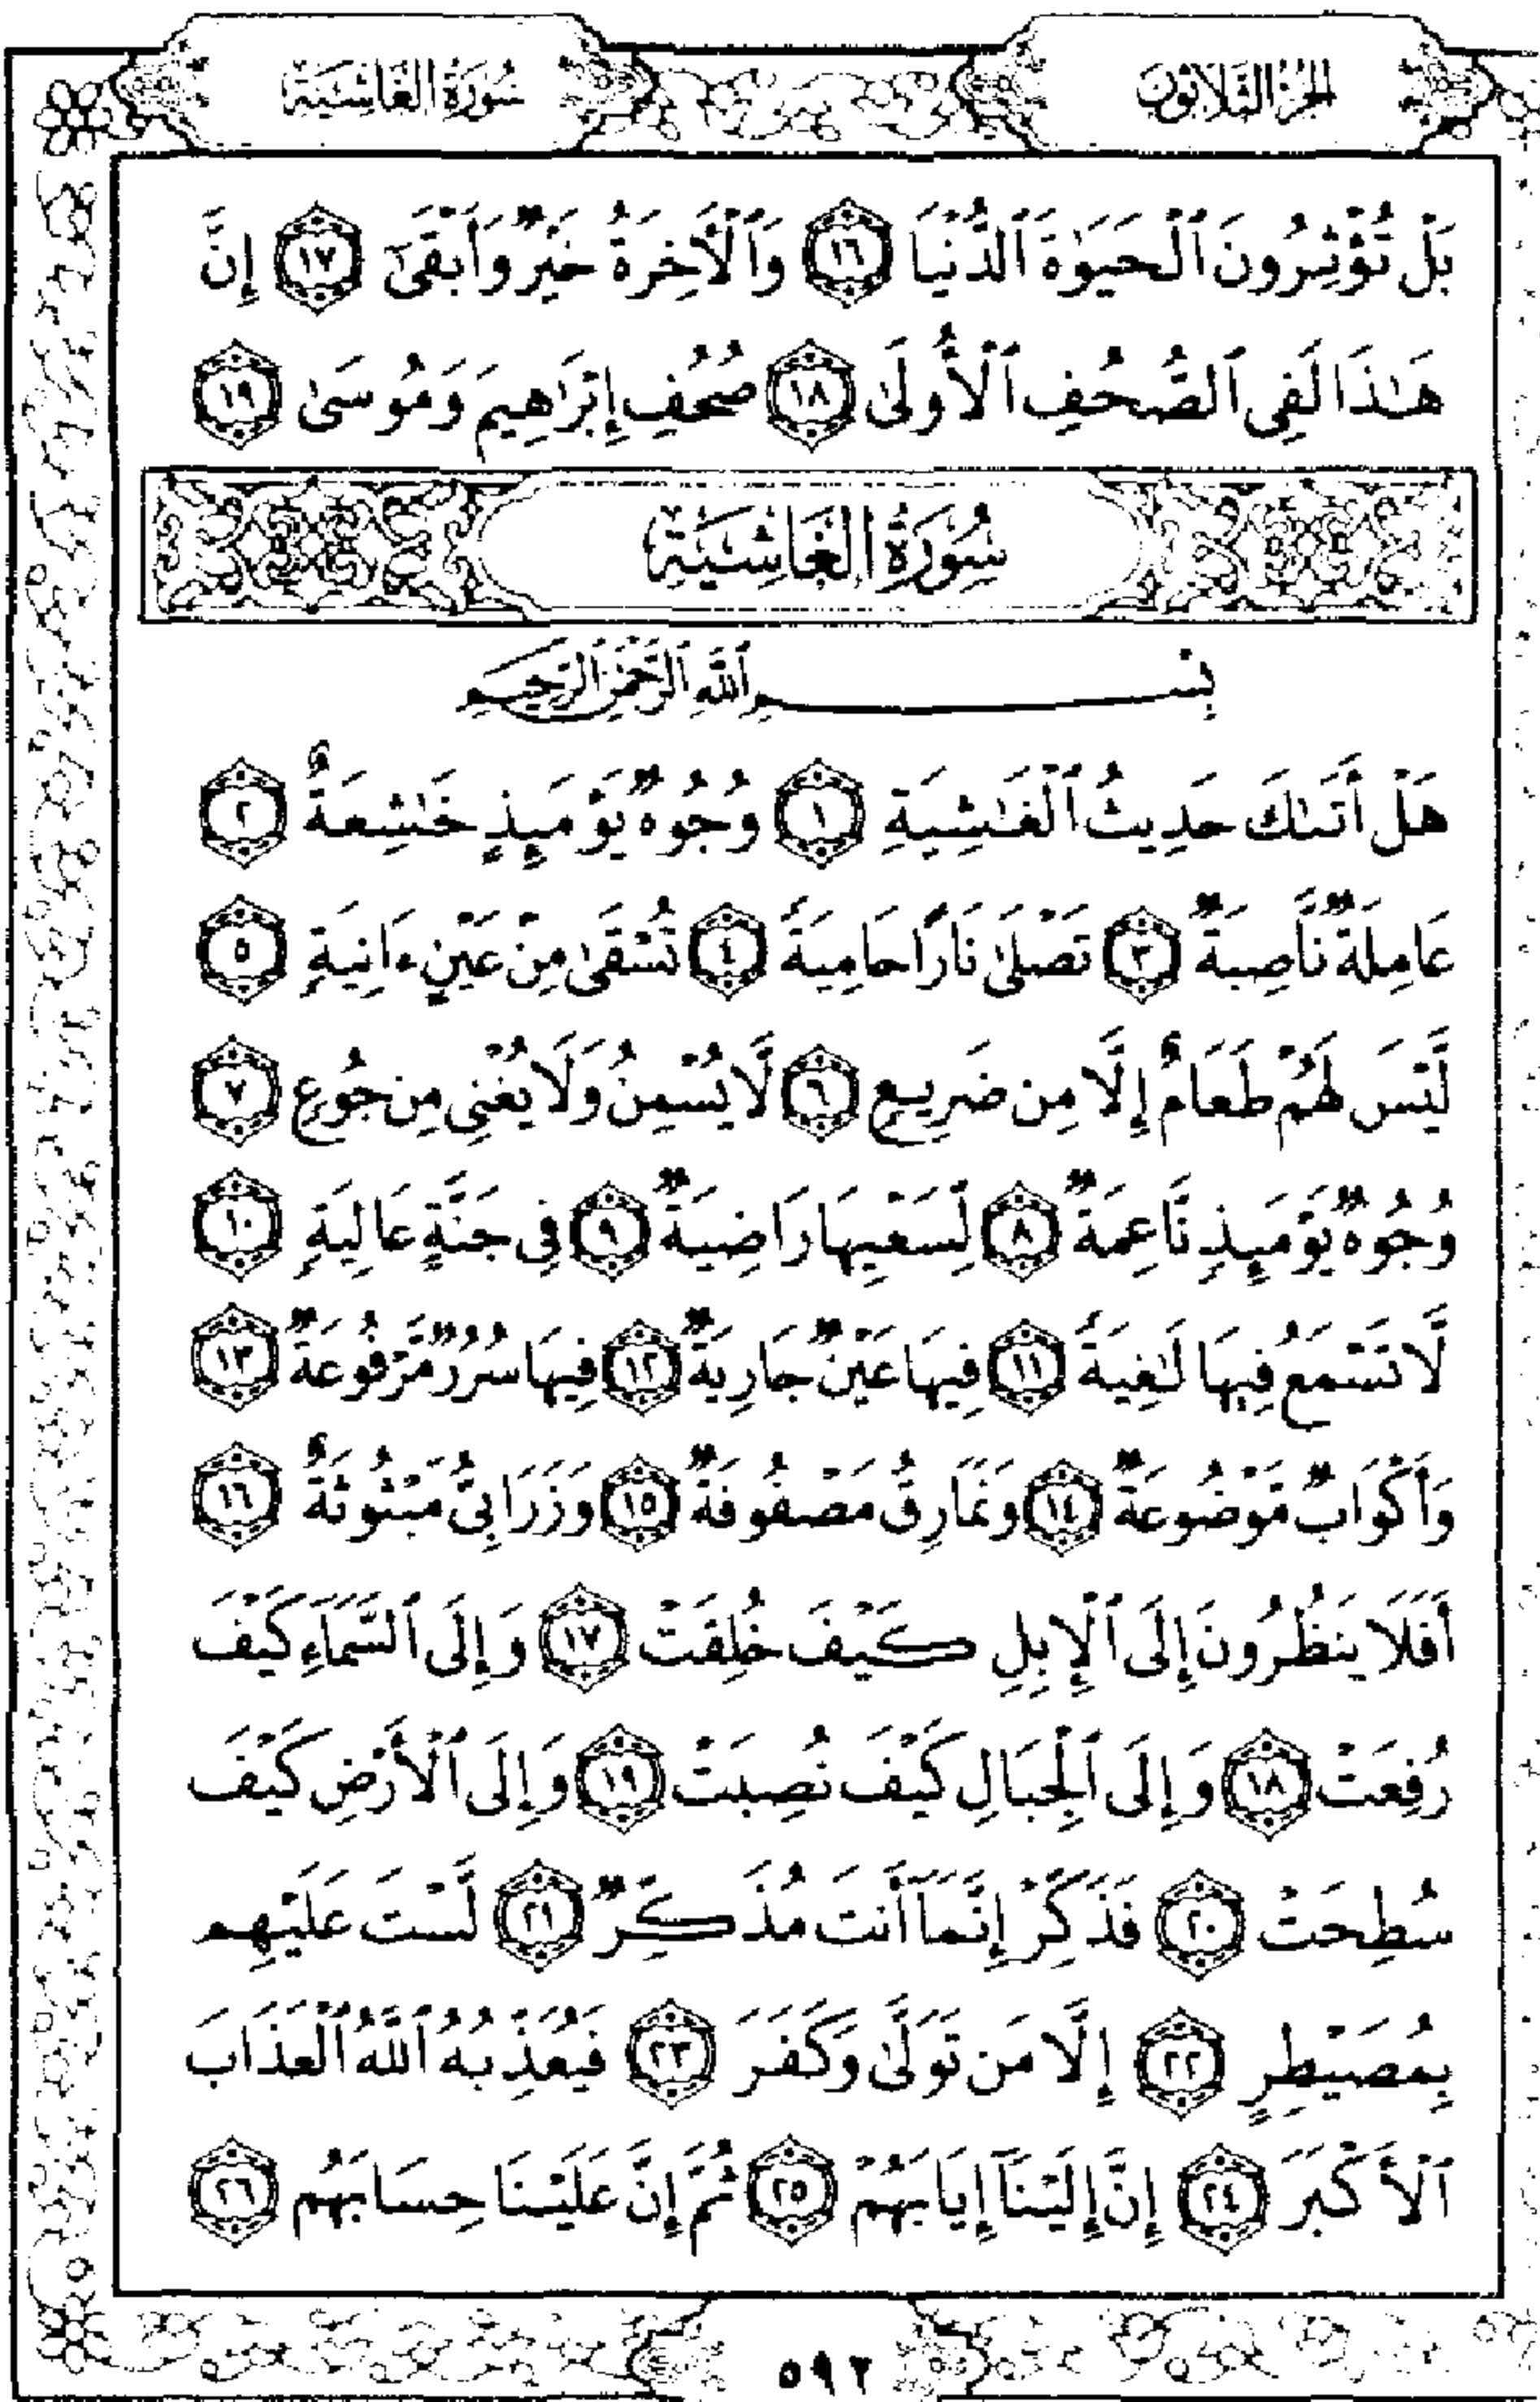 الجزء الثلاثون
سورة الغاشية
بَلْ تُؤْثِرُونَ ٱلْحَيَوٰةَ ٱلدُّنْيَا ١٦ وَٱلْأَخِرَةُ خَيْرٌ وَأَبْقَىٰٓ ١٧ إِنَّ
هَٰذَا لَفِى ٱلصُّحُفِ ٱلْأُولَىٰ ١٨ صُحُفِ إِبْرَٰهِيمَ وَمُوسَىٰ ١٩
سُورَةُ الغَاشِيَةِ
بِسْمِ ٱللَّهِ ٱلرَّحْمَٰنِ ٱلرَّحِيمِ
هَلْ أَتَىٰكَ حَدِيثُ ٱلْغَٰشِيَةِ ١ وُجُوهٌ يَوْمَئِذٍ خَٰشِعَةٌ ٢
عَامِلَةٌ نَّاصِبَةٌ ٣ تَصْلَىٰ نَارًا حَامِيَةً ٤ تُسْقَىٰ مِنْ عَيْنٍ ءَانِيَةٍ ٥
لَّيْسَ لَهُمْ طَعَامٌ إِلَّا مِن ضَرِيعٍ ٦ لَّا يُسْمِنُ وَلَا يُغْنِى مِن جُوعٍ ٧
وُجُوهٌ يَوْمَئِذٍ نَّاعِمَةٌ ٨ لِّسَعْيِهَا رَاضِيَةٌ ٩ فِى جَنَّةٍ عَالِيَةٍ ١٠
لَّا تَسْمَعُ فِيهَا لَٰغِيَةً ١١ فِيهَا عَيْنٌ جَارِيَةٌ ١٢ فِيهَا سُرُرٌ مَّرْفُوعَةٌ ١٣
وَأَكْوَابٌ مَّوْضُوعَةٌ ١٤ وَنَمَارِقُ مَصْفُوفَةٌ ١٥ وَزَرَابِىُّ مَبْثُوثَةٌ ١٦
أَفَلَا يَنظُرُونَ إِلَى ٱلْإِبِلِ كَيْفَ خُلِقَتْ ١٧ وَإِلَى ٱلسَّمَآءِ كَيْفَ
رُفِعَتْ ١٨ وَإِلَى ٱلْجِبَالِ كَيْفَ نُصِبَتْ ١٩ وَإِلَى ٱلْأَرْضِ كَيْفَ
سُطِحَتْ ٢٠ فَذَكِّرْ إِنَّمَآ أَنتَ مُذَكِّرٌ ٢١ لَّسْتَ عَلَيْهِم
بِمُصَيْطِرٍ ٢٢ إِلَّا مَن تَوَلَّىٰ وَكَفَرَ ٢٣ فَيُعَذِّبُهُ ٱللَّهُ ٱلْعَذَابَ
ٱلْأَكْبَرَ ٢٤ إِنَّ إِلَيْنَآ إِيَابَهُمْ ٢٥ ثُمَّ إِنَّ عَلَيْنَا حِسَابَهُم ٢٦
٥٩٢